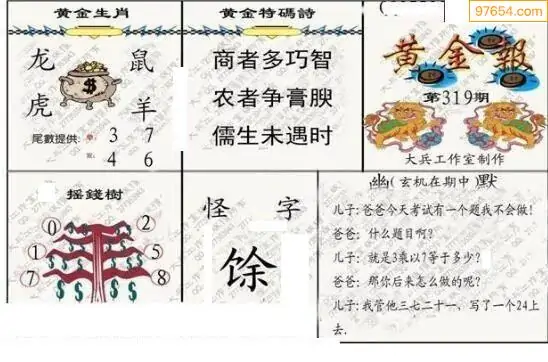 97654.com
黄金生肖
龙 鼠
虎 羊
尾數提供: 單: 3 7
雙: 4 6
黄金特碼詩
商者多巧智
农者争膏腴
儒生未遇时
黄金報
第319期
大兵工作室制作
摇錢樹
0 2
1 5
7 8
怪 字
馀
幽(玄机在期中)默
儿子:爸爸今天考试有一个题我不会做!
爸爸: 什么题目啊?
儿子: 就是3乘以7等于多少?
爸爸: 那你后来怎么做的呢?
儿子:我管他三七二十一, 写了一个24上
去.